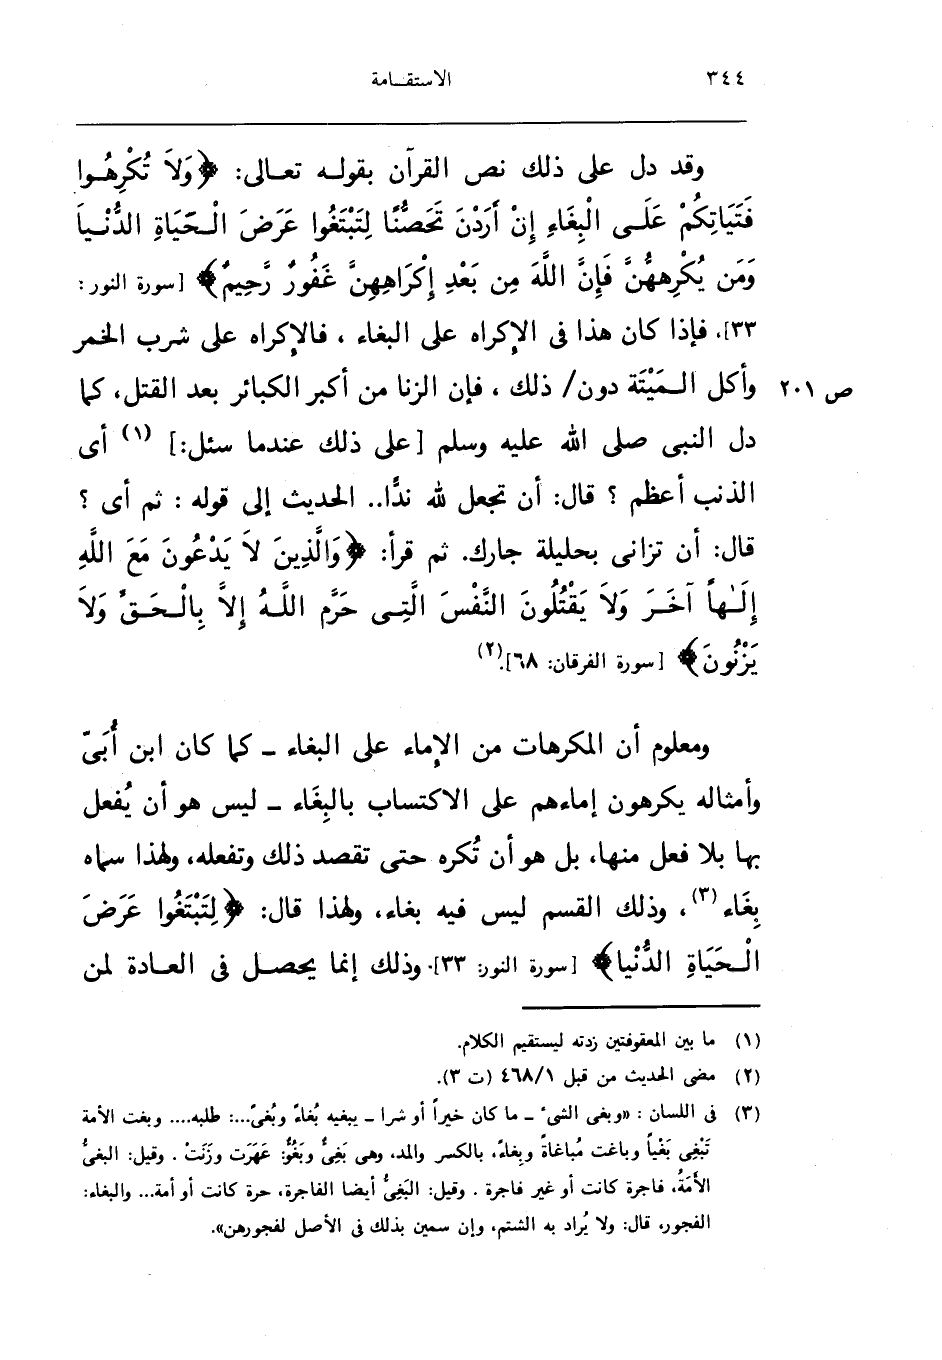 ٣٤٤ الاستقـامة
وقد دل على ذلك نص القرآن بقولـه تعـالى: ﴿وَلاَ تُكْرِهُـوا
فَتَيَاتِكُمْ عَلَـى الْبِغَاءِ إِنْ أَرَدْنَ تَحَصُّنًا لِتَبْتَغُوا عَرَضَ الْـحَيَاةِ الدُّنْـيـا
وَمَن يُكْرِههُّنَّ فَإِنَّ اللَّهَ مِن بَعْدِ إِكْرَاهِهِنَّ غَفُورٌ رَّحِيمٌ﴾ [سورة النور :
٣٣]. فإذا كان هذا فى الإكراه على البغاء ، فالإكراه على شرب الخمر
وأكل الـمَيْتَة دون/ ذلك ، فإن الزنا من أكبر الكبائر بعد القتل، كما ص ٢٠١
دل النبى صلى الله عليه وسلم [على ذلك عندما سئل:] (١) أى
الذنب أعظم ؟ قال: أن تجعل لله ندًّا.. الحديث إلى قوله : ثم أى ؟
قال: أن تزانى بحليلة جارك. ثم قرأ: ﴿وَالَّذِينَ لاَ يَدْعُونَ مَعَ اللَّهِ
إِلَـٰهاً آخَـرَ وَلاَ يَقْتُلُونَ النَّفْسَ الَّتِـى حَرَّم اللَّـهُ إِلاَّ بِالْـحَـقِّ وَلاَ
يَزْنُونَ﴾ [سورة الفرقان: ٦٨].(٢)
ومعلوم أن المكرهات من الإماء على البغاء ـ كما كان ابن أُبَىّ
وأمثاله يكرهون إماءهم على الاكتساب بالبِغَاء ـ ليس هو أن يُفعل
بها بلا فعل منها، بل هو أن تُكره حتى تقصد ذلك وتفعله، ولهذا سماه
بِغَاء (٣)، وذلك القسم ليس فيه بغاء، ولهذا قال: ﴿لِتَبْتَغُوا عَرَضَ
الْـحَيَاةِ الدُّنْيا﴾ [سورة النور: ٣٣]. وذلك إنما يحصـل فى العـادة لمن
(١) ما بين المعقوفتين زدته ليستقيم الكلام.
(٢) مضى الحديث من قبل ٤٦٨/١ (ت ٣).
(٣) فى اللسان : «وبغى الشىء ـ ما كان خيراً أو شرا ـ يبغيه بُغاءً وبُغىً...: طلبه.... وبغت الأمة
تَبْغِى بَغْياً وباغت مُباغاةً وبِغاءً، بالكسر والمد، وهى بَغِىٌّ وبَغُوٌّ: عَهَرَت وزَنَتْ . وقيل: البغىُّ
الأمَةُ، فاجرة كانت أو غير فاجرة . وقيل: البَغِىُّ أيضا الفاجرة، حرة كانت أو أمة... والبغاء:
الفجور، قال: ولا يُراد به الشتم، وإن سمين بذلك فى الأصل لفجورهن».